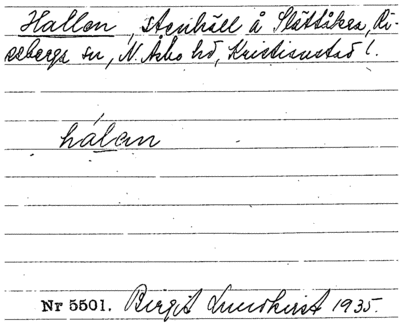 Hallen, stenhäll å Slättåkra, Ri-
seberga sn, N. Åsbo hd, Kristianstad l.
hálan
Nr 5501. Birgit Lundkvist 1935.